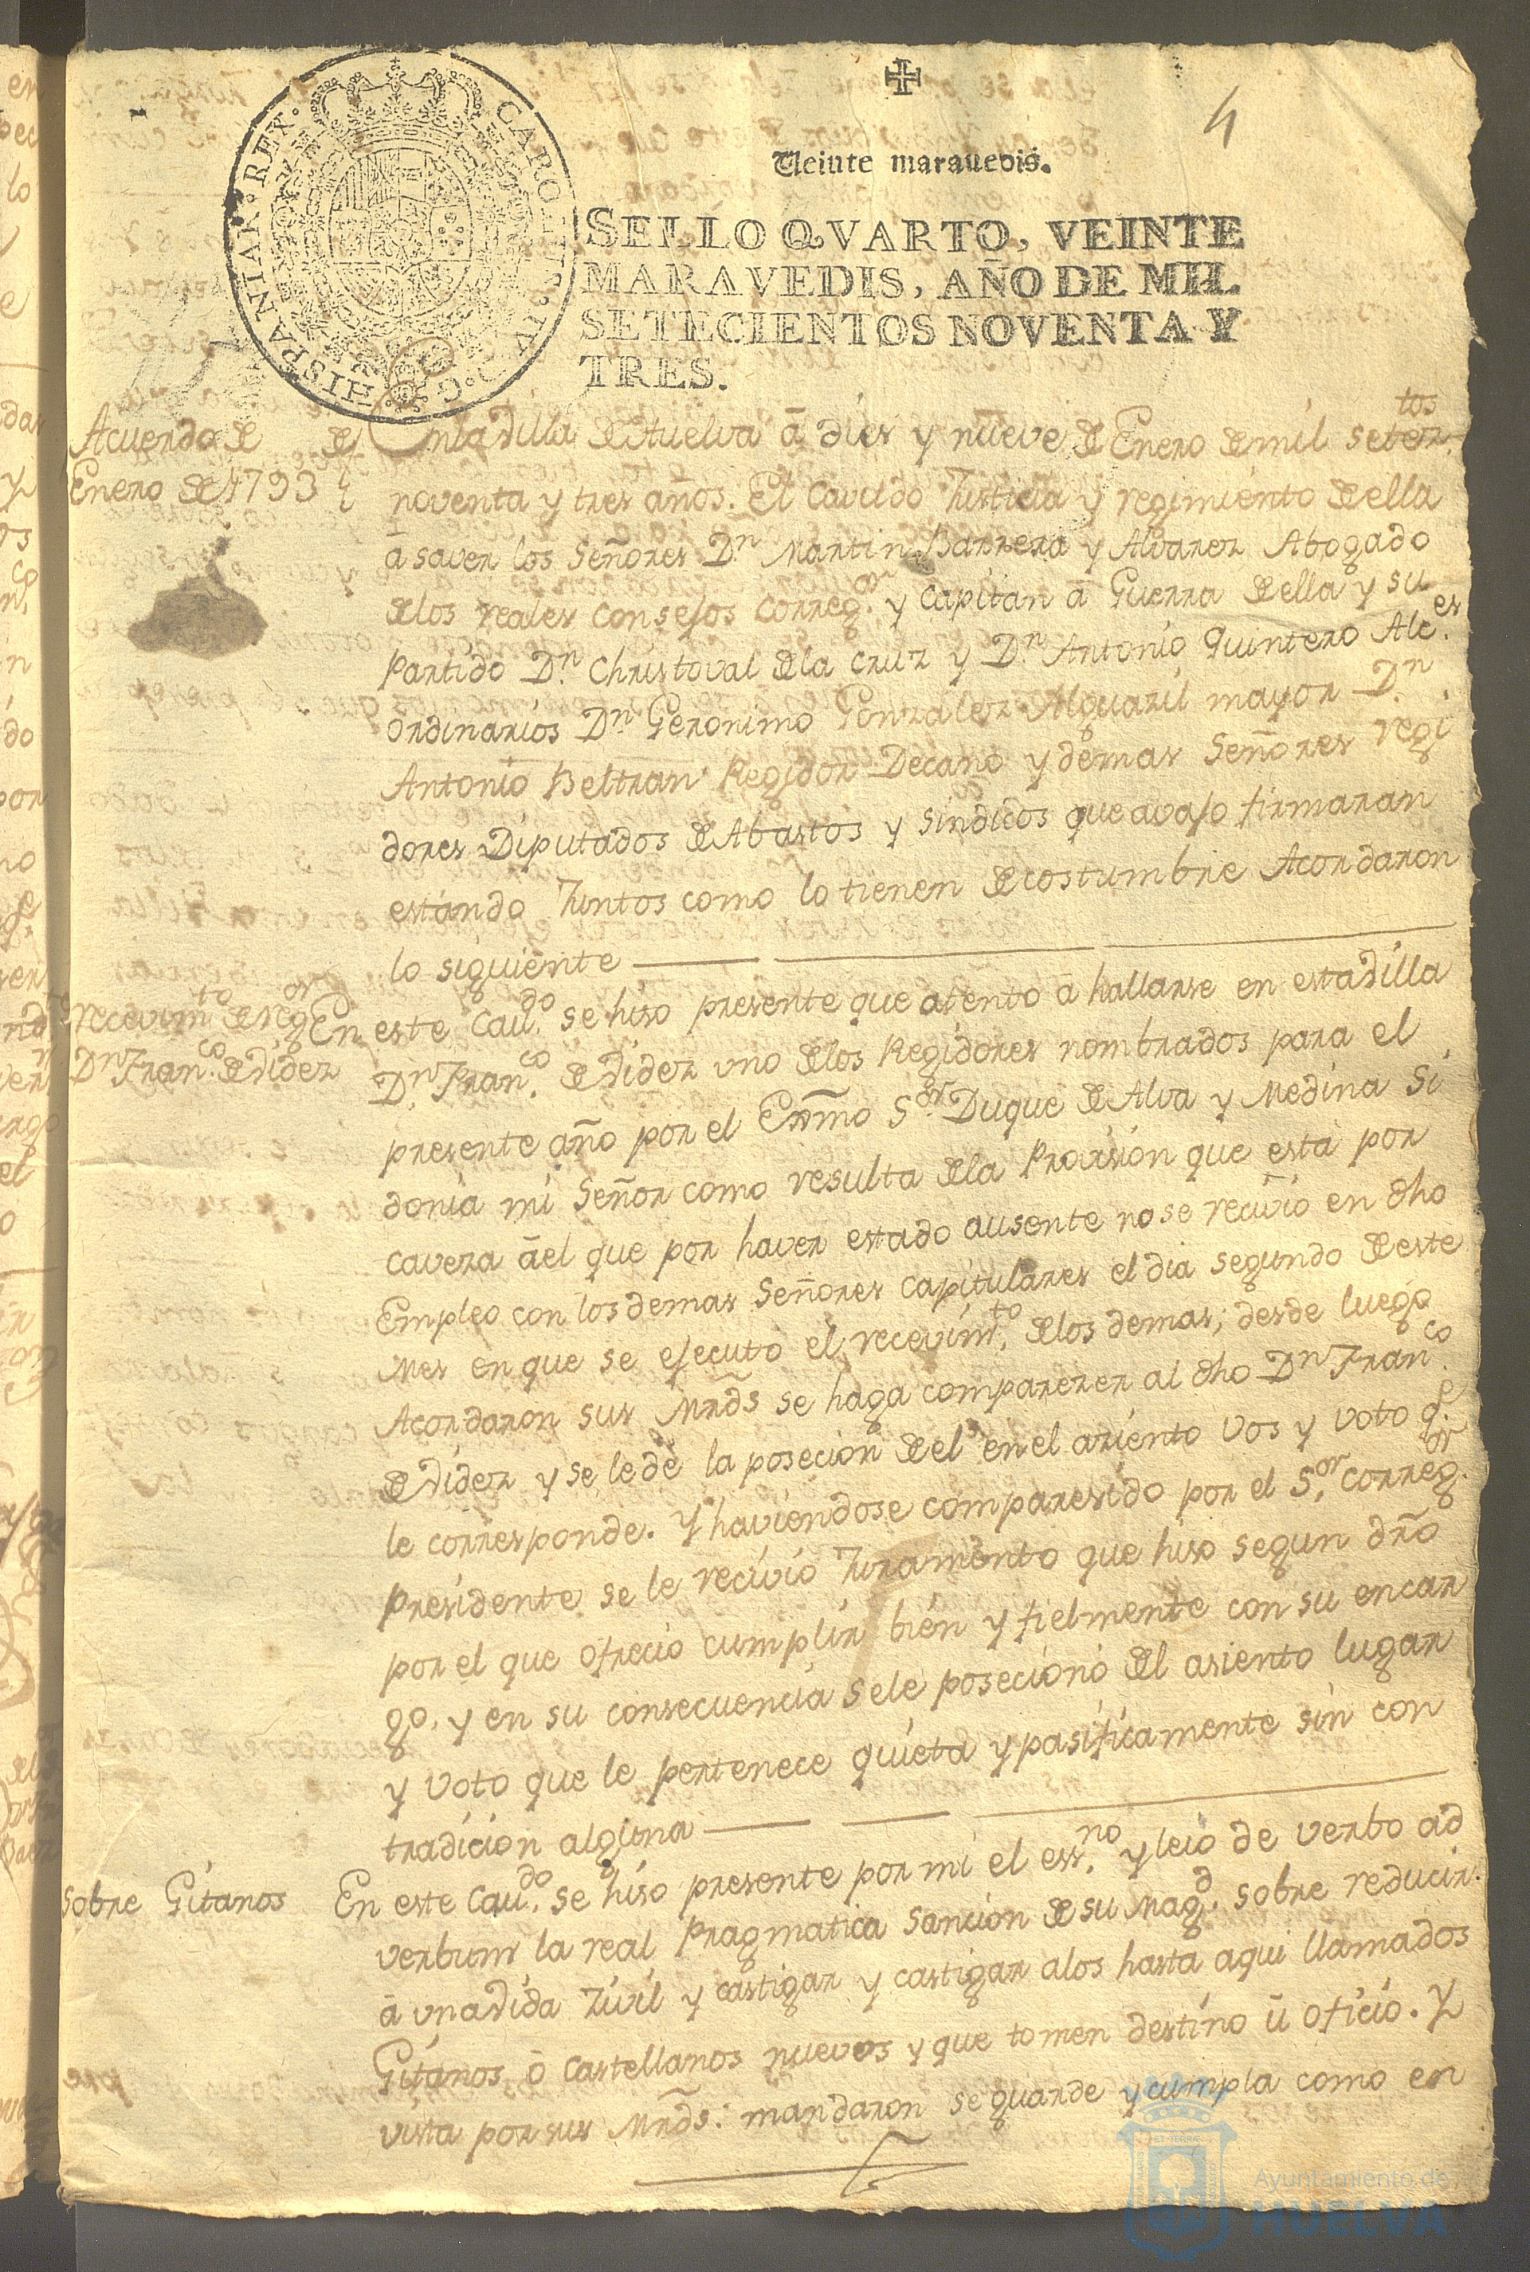 4
Veinte maravedis.
CAROLUS · IV · D · G · HISPANIAR · REX ·
SELLO QVARTO, VEINTE
MARAVEDIS, AÑO DE MIL
SETECIENTOS NOVENTA Y
TRES.
Acuerdo de de
Enero de 1793
En la Villa de Huelva â dies y nueve de Enero de mil setez.tos
noventa y tres años. El Cavildo Justicia y regimiento de ella
â saver los Señores Dn Martin Barrera y Alvarez Abogado
de los reales consejos correg.or y capitan â Guerra de ella y su
partido Dn Christoval de la Cruz y Dn Antonio Quintero Alc.es
ordinarios Dn Geronimo Gonzalez Alguazil mayor Dn
Antonio Beltran Regidor Decano y demas Señores regi
dores Diputados de Abastos y sindicos que avajo firmaran
estando Juntos como lo tienen de costumbre Acordaron
lo siguiente
recevim.to de reg.or
Dn Fran.co de Videz
En este Cav.do se hiso presente que atento â hallarse en esta Villa
Dn Fran.co de Videz uno de los Regidores nombrados para el
presente año por el Exmo S.or Duque de Alva y Medina Si
donia mi Señor como resulta de la Provision que està por
caveza âel que por haver estado ausente no se recivio en dho
Empleo con los demas Señores capitulares el dia segundo de este
Mes en que se ejecuto el recevim.to de los demas; desde luego
Acordaron sus Mrds se haga comparezer al dho Dn Fran.co
de Videz y se le dè la posecion de el en el aziento vos y voto q.e
le corresponde. Y haviendose comparesido por el S.or Correg.or
presidente se le recivio Juramento que hiso segun dro
por el que ofrecio cumplir bien y fielmente con su encar
go, y en su consecuencia se le posecionò del asiento lugar
y voto que le pertenece quieta y pasificamente sin con
tradicion alguna
Sobre Gitanos
En este Cav.do se hiso presente por mi el ess.no y leio de verbo ad
verbum la real Pragmatica Sancion de su Mag.d sobre reducir
â una vida Zivil y castigar y castigar a los hasta aqui llamados
Gitanos ô Castellanos nuevos y que tomen destino û oficio. Y
vista por sus Mrds: mandaron se guarde y cumpla como en
Ayuntamiento de
HUELVA